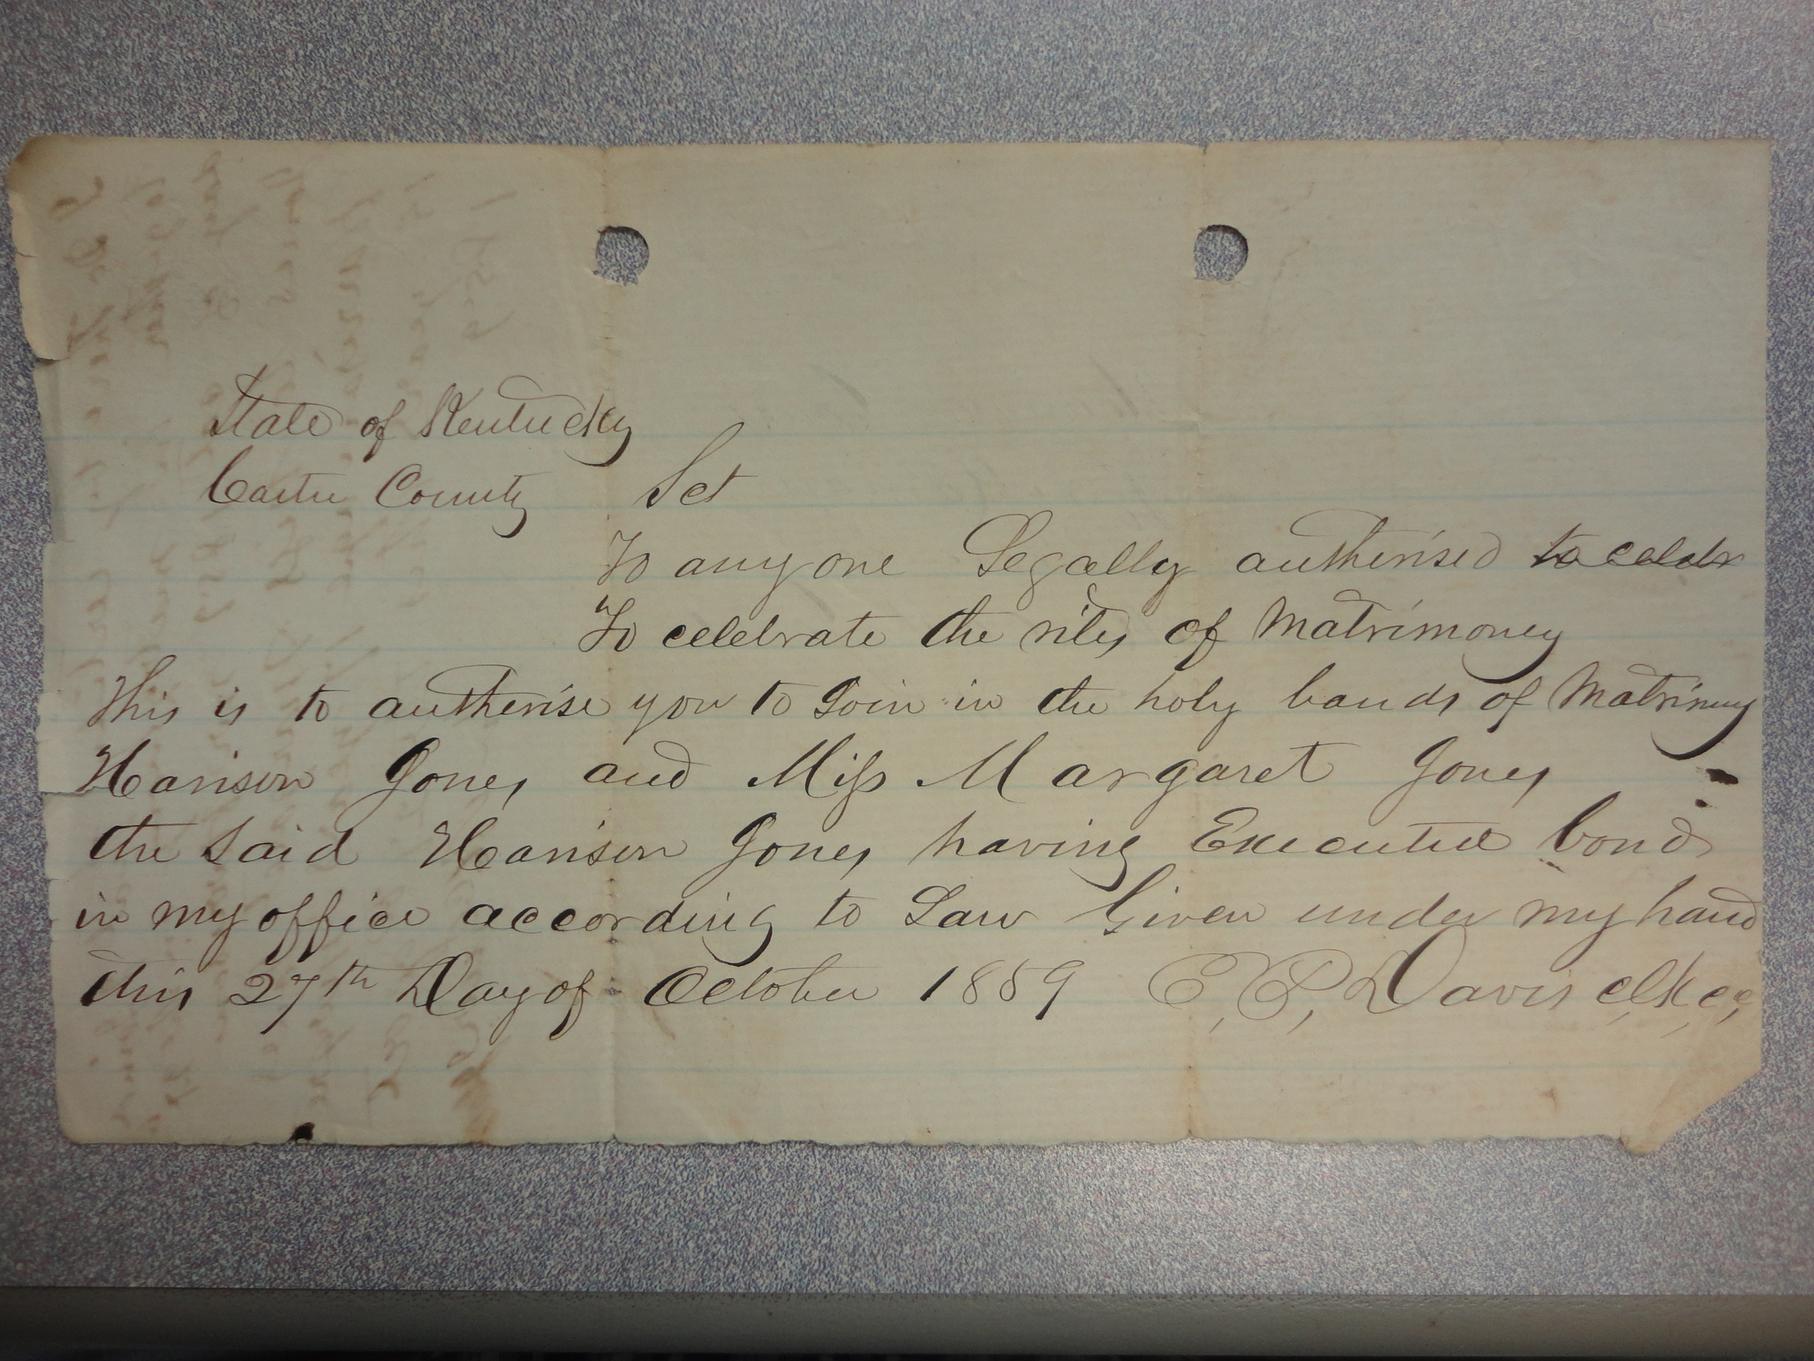 State of Kentucky
Carter County Sct
To any one Legally autherised to celebr
To celebrate the rites of Matrimoney
This is to autherise you to Join in the holy bands of Matrimny
Harison Jones and Miss Margaret Jones
the said Harison Jones having Executed bond
in my office according to Law Given under my hand
this 27th Day of October 1859 Davis clk